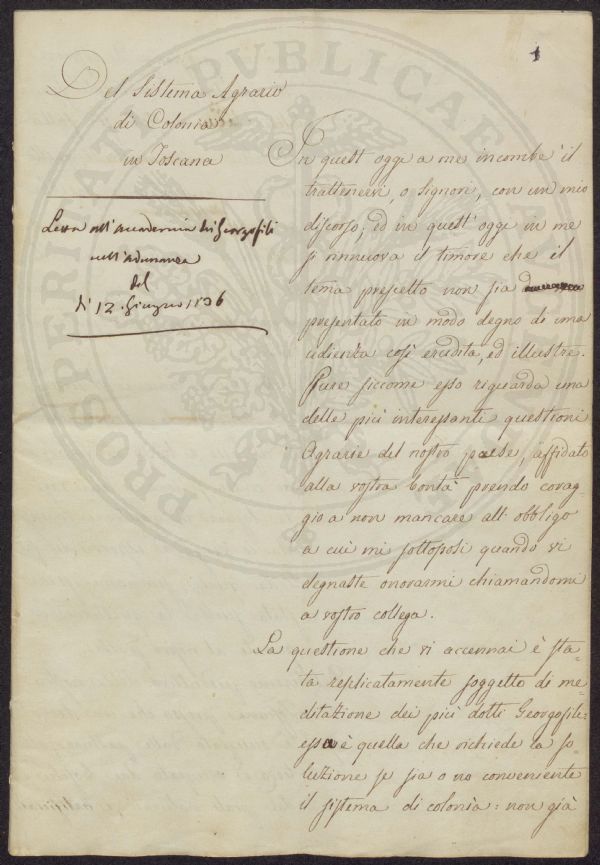 1
Del Sistema Agrario
di Colonia
in Toscana
Letta all'accademia dei Georgofili
nell'adunanza
del
dì 12. Giugno 1836
In quest' oggi a me incombe il
trattenervi, o Signori, con un mio
discorso, ed in quest' oggi in me
si rinnuova il timore che il
tema prescelto non sia
presentato in modo degno di una
udienza così erudita, ed illustre.
Pure siccome esso riguarda una
delle più interessanti questioni
Agrarie del nostro paese, affidato
alla vostra bontà prendo corag=
gio a non mancare all' obbligo
a cui mi sottoposi quando vi
degnaste onorarmi chiamandomi
a vostro collega.
La questione che vi accennai è sta=
ta replicatamente soggetto di me=
ditazione dei più dotti Georgofili:
essa è quella che richiede la so=
luzione se sia o no conveniente
il sistema di colonìa: non già
PROSPERITATI PUBLICAE